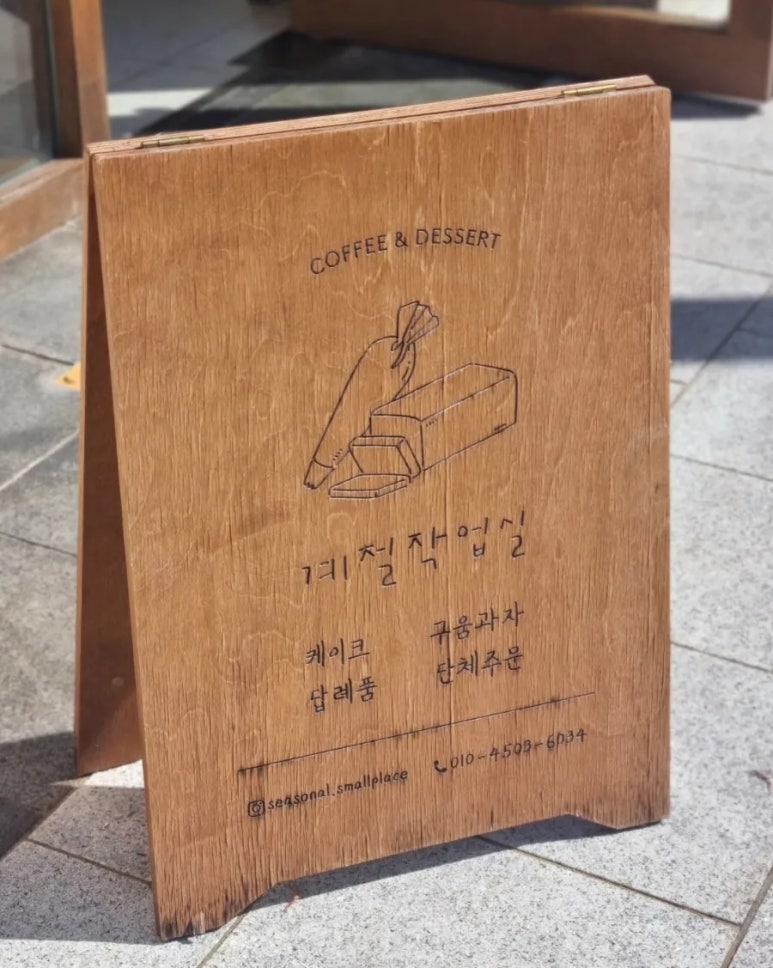 COFFEE & DESSERT
계절작업실
케이크 구움과자
답례품 단체주문
@seasonal.smallplace 010-4503-6034